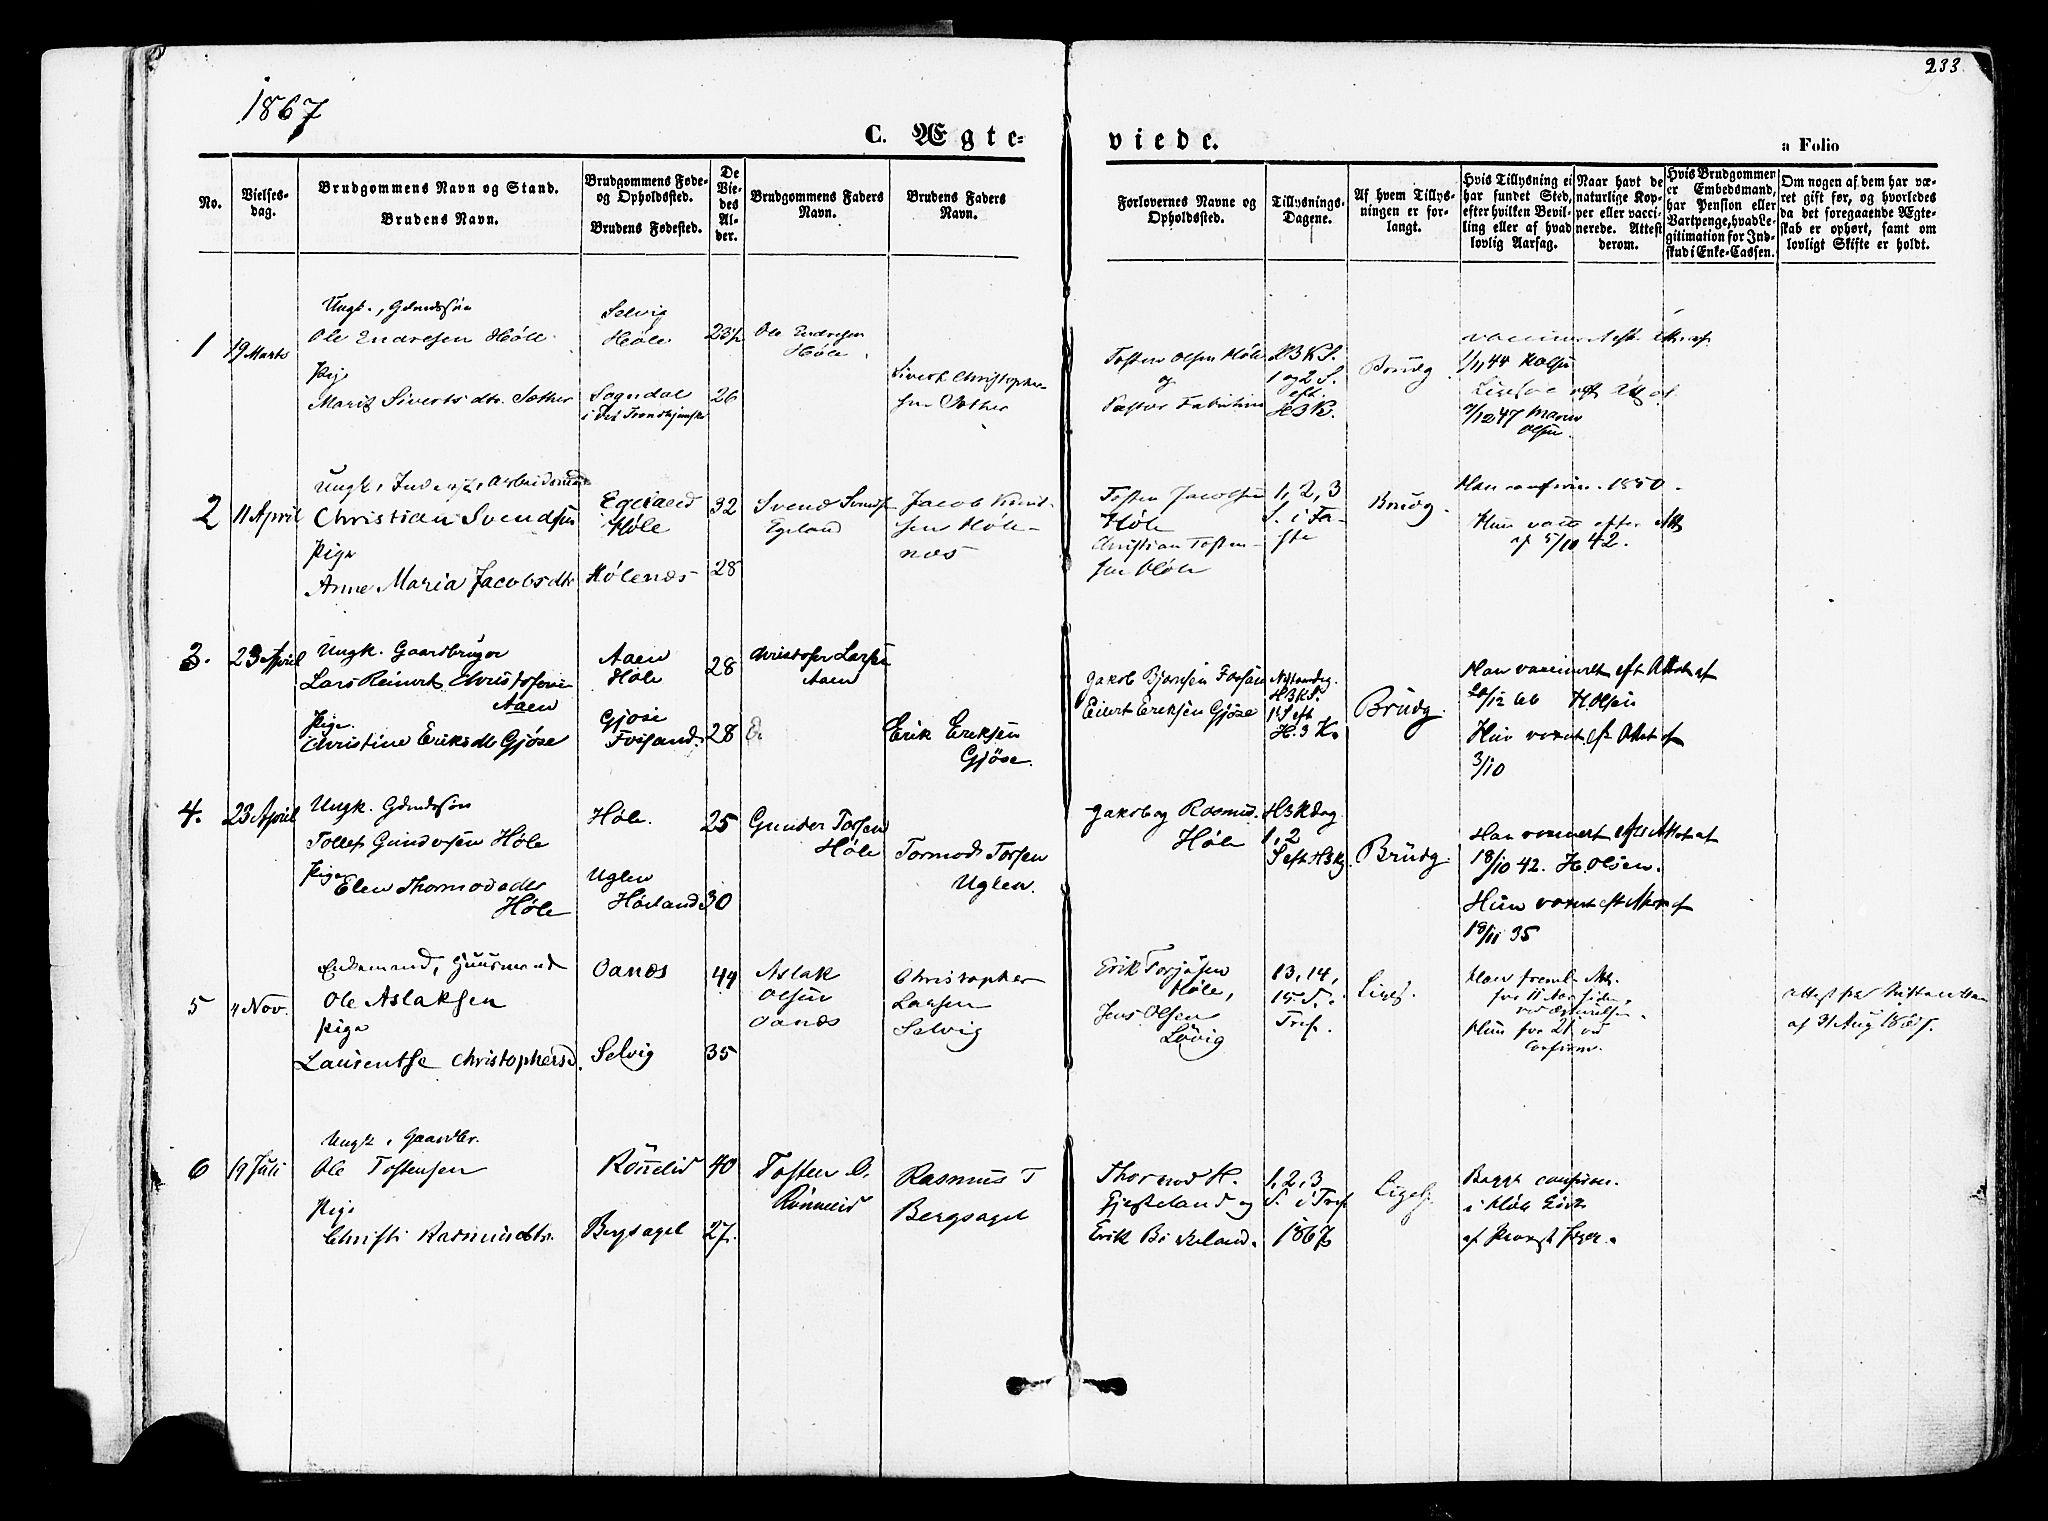 1867
233
C. Ægte-
viede.
a Folio
No.
Vielses-
dag.
Brudgommens Navn og Stand.
Brudens Navn.
Brudgommens Føde-
og Opholdssted.
Brudens Fødested.
De
Vie-
des
Al-
der.
Brudgommens Faders
Navn.
Brudens Faders
Navn.
Forlovernes Navne og
Opholdssted.
Tillysnings-
Dagene.
Af hvem Tillys-
ningen er for-
langt.
Hvis Tillysning ei
har fundet Sted,
efter hvilken Bevil-
ling eller af hvad
lovlig Aarsag.
Naar havt de
naturlige Kop-
per eller vacci-
nerede. Attest
derom.
Hvis Brudgommen
er Embedsmand,
har Pension eller
Vartpenge, hvad Le-
gitimation for Ind-
skud i Enke-Cassen.
Om nogen af dem har væ-
ret gift før, og hvorledes
da det foregaaende Ægte-
skab er ophørt, samt om
lovligt Skifte er holdt.
1
19 Marts
Ungk., Gdmdssøn
Ole Endresen Høle
Pige
Marit Sivertsdtr. Sæther
Selvig
Høle
Sogndal
i det Trondhjemske
26
Ole Endresen
Høle
Sivert Christopher-
sen Sæther
Tosten Olsen Høle
og
Pastor
1 og 2 S.
eft.
H3K.
Brudg.
1/1,44
7/12 47
Olsen.
2
11 April
Ungk., Arbeidsmand
Christian Svendsen
Pige
Anne Maria Jacobsdtr
Egeland
Høle
Hølenæs
32
28
Svend Svends
Egeland
Jacob Knud-
sen Høle-
næs
Tosten Jacobsen
Høle
Christian Tosten-
sen Høle
1, 2, 3
S. i Fa-
ste
Brudg.
Han confirm. 1850.
Hun vacc efter Att
af 5/10 42.
3.
23 April
Ungk. Gaardbruger
Lars Reinert Christofersen
Aaen
Pige
Christine Eriksdt Gjøse
Aaen
Høle
Gjøse
Forsand
28
28
Christofer Larsen
Aaen
Erik Eriksen
Gjøse.
Jakob Bjørnsen Forsan
Eilert Eriksen Gjøse
H3K S.
1 S eft
H. 3 K.
Brudg.
Han vaccineret eft Attest af
20/12 66 H Olsen
Hun vaccet eft Attest af
3/10
4.
23 April
Ungk. Gdmdssøn
Tollef Gundersen Høle
Pige
Elen Thormodsdtr
Høle
Høle.
Uglen
Høiland
25
30
Gunder Torsen
Høle
Tormod Torsen
Uglen.
Jakob og Rasmus
Høle
H3Kdag
1, 2
S eft H3Kg.
Brudg.
Han vaccinert eft Attest af
18/10 42. H. Olsen.
Hun vaccet eft Attest af
18/11 35
5
4 Nov.
Enkemand, Huusmand
Ole Aslaksen
Pige
Laurentse Christophersd.
Oanæs
Selvig
44
35
Aslak
Olsen
Oanæs
Christopher
Larsen
Selvig
Erik Torjøsen
Høle,
Jens Olsen
Løvig
13, 14,
15 S.
Tref.
Liges.
for 11 Aar siden,
Hun for 21 ved
confirm.
Attest fra Skifteretten
6
19 Juli
Ungk., Gaardbr.
Ole Tostensen
Pige
Christi Rasmusdtr.
Rönneid
Bergsagel
40
27.
Tosten O.
Rönneid
Rasmus T
Bergsagel
Thormod H.
Gjesteland og
Erik Birkeland.
1, 2, 3
S. i Tref
1867
Liges.
Begge confirm.
i Høle Kirke
af Provst